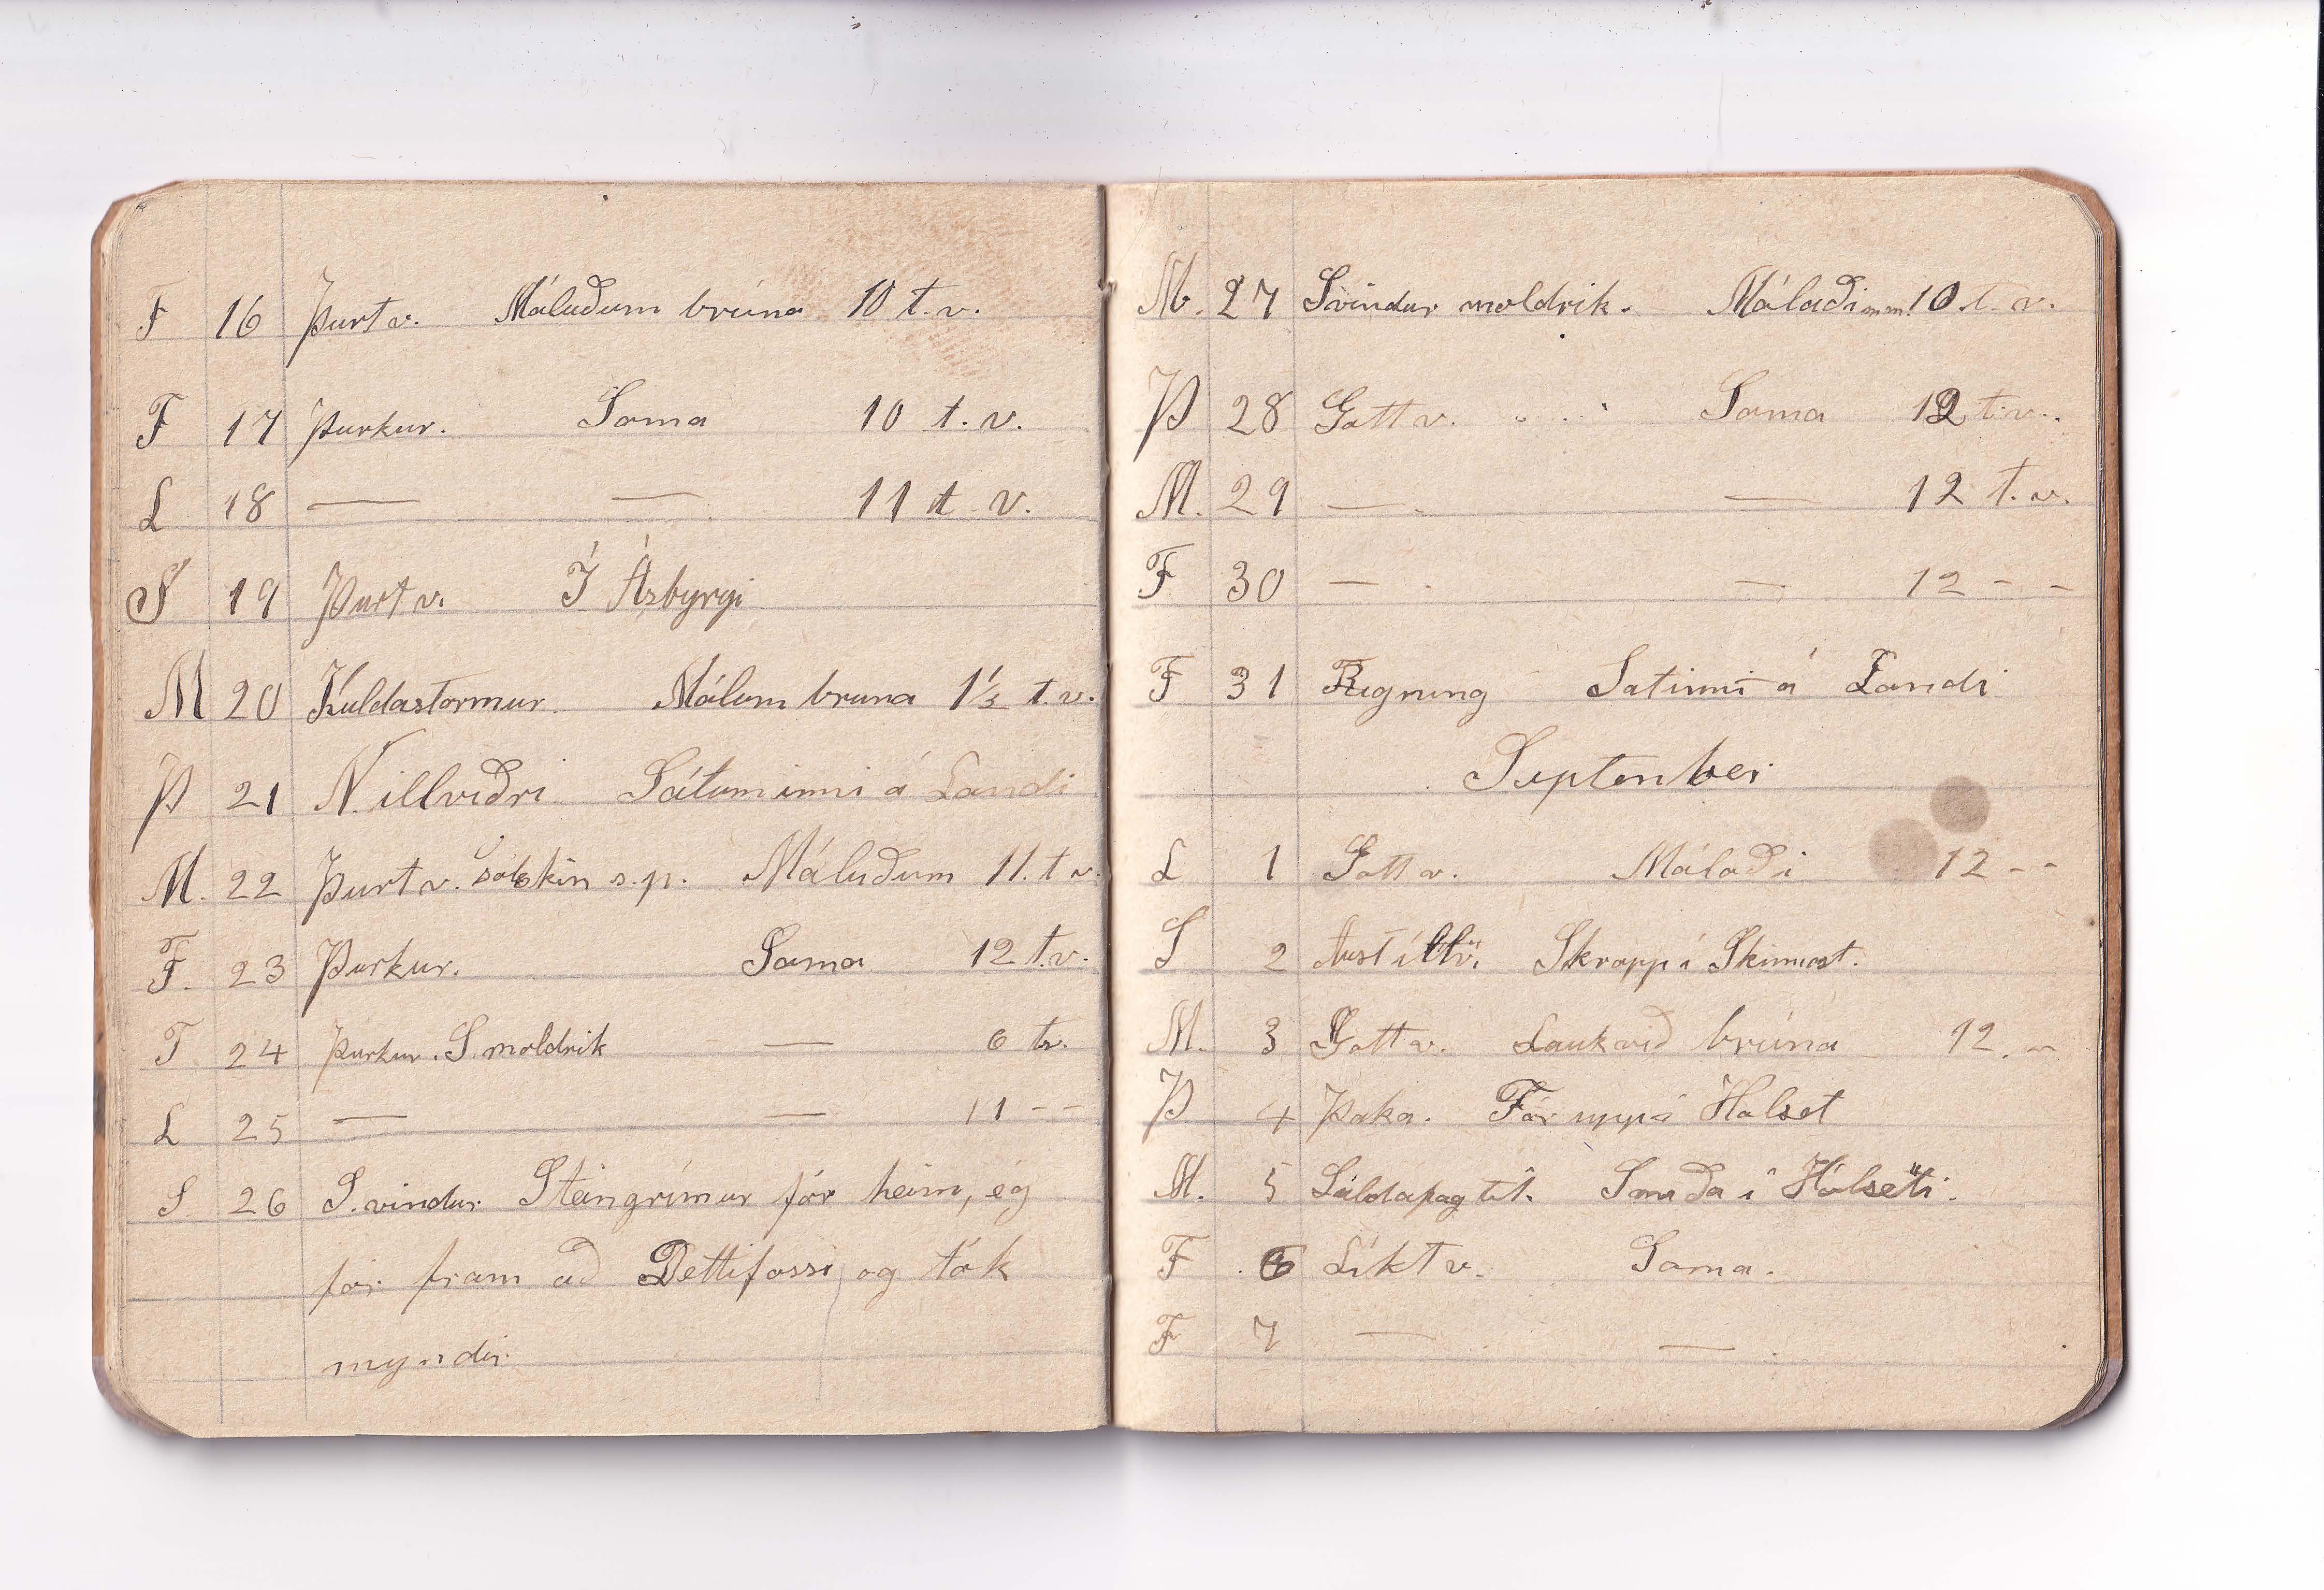 F 16 Þurt v. Máluðum brúna 10 t. v.
F 17 Þurkur. Sama 10 t. v.
L 18 — — 11 t. v.
S 19 Þurt v. Í Ásbyrgi
M 20 Kuldastormur. Málum bruna 1½ t. v.
Þ 21 N. illviðri Sátum inni á Landi
M. 22 Þurt v. sólskin s.p. Máluðum 11. t v.
F. 23 Þurkur. Sama 12 t. v.
F 24 Þurkur. S. moldrik — 6 tv.
L 25 — — 11 - -
S 26 S. vindur. Steingrímur fór heim, ég
fór fram að Dettifossi og tók
myndir
M. 27 S vindur moldrik. Málaði 10. t. v.
Þ 28 Gott v. Sama 12 t. v.
M. 29 — — 12 t. v.
F 30 — — 12 - -
F 31 Rigning Sat inni á Landi
September
L 1 Gott v. Málaði 12 - -
S 2 Aust illv. Skrapp í
M. 3 Gott v. Lauk við brúna 12. -
Þ 4 Þoka. Fór upp í Hólset
M. 5 Smiða í Hólseti.
F 6 Líkt v. Sama.
F 7 — —